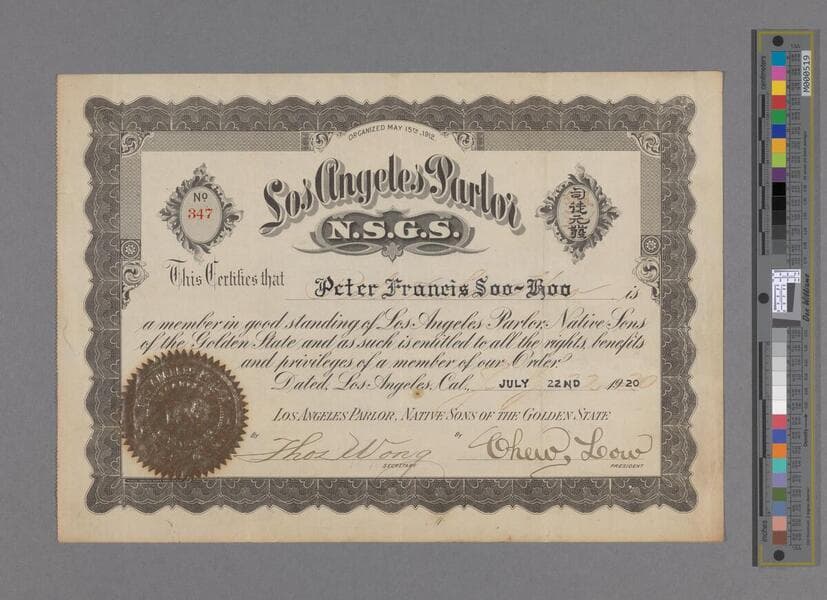 ORGANIZED MAY 15TH, 1912.
Los Angeles Parlor
N.S.G.S.
No
347
司徒元發
This Certifies that Peter Francis Soo-Hoo is
a member in good standing of Los Angeles Parlor, Native Sons
of the Golden State and as such is entitled to all the rights, benefits
and privileges of a member of our Order.
Dated, Los Angeles, Cal., JULY 22ND 1920
LOS ANGELES PARLOR, NATIVE SONS OF THE GOLDEN STATE
BY Thos Wong BY Chew, Low
SECRETARY PRESIDENT
centimeters
M000519
Don Williams
inches